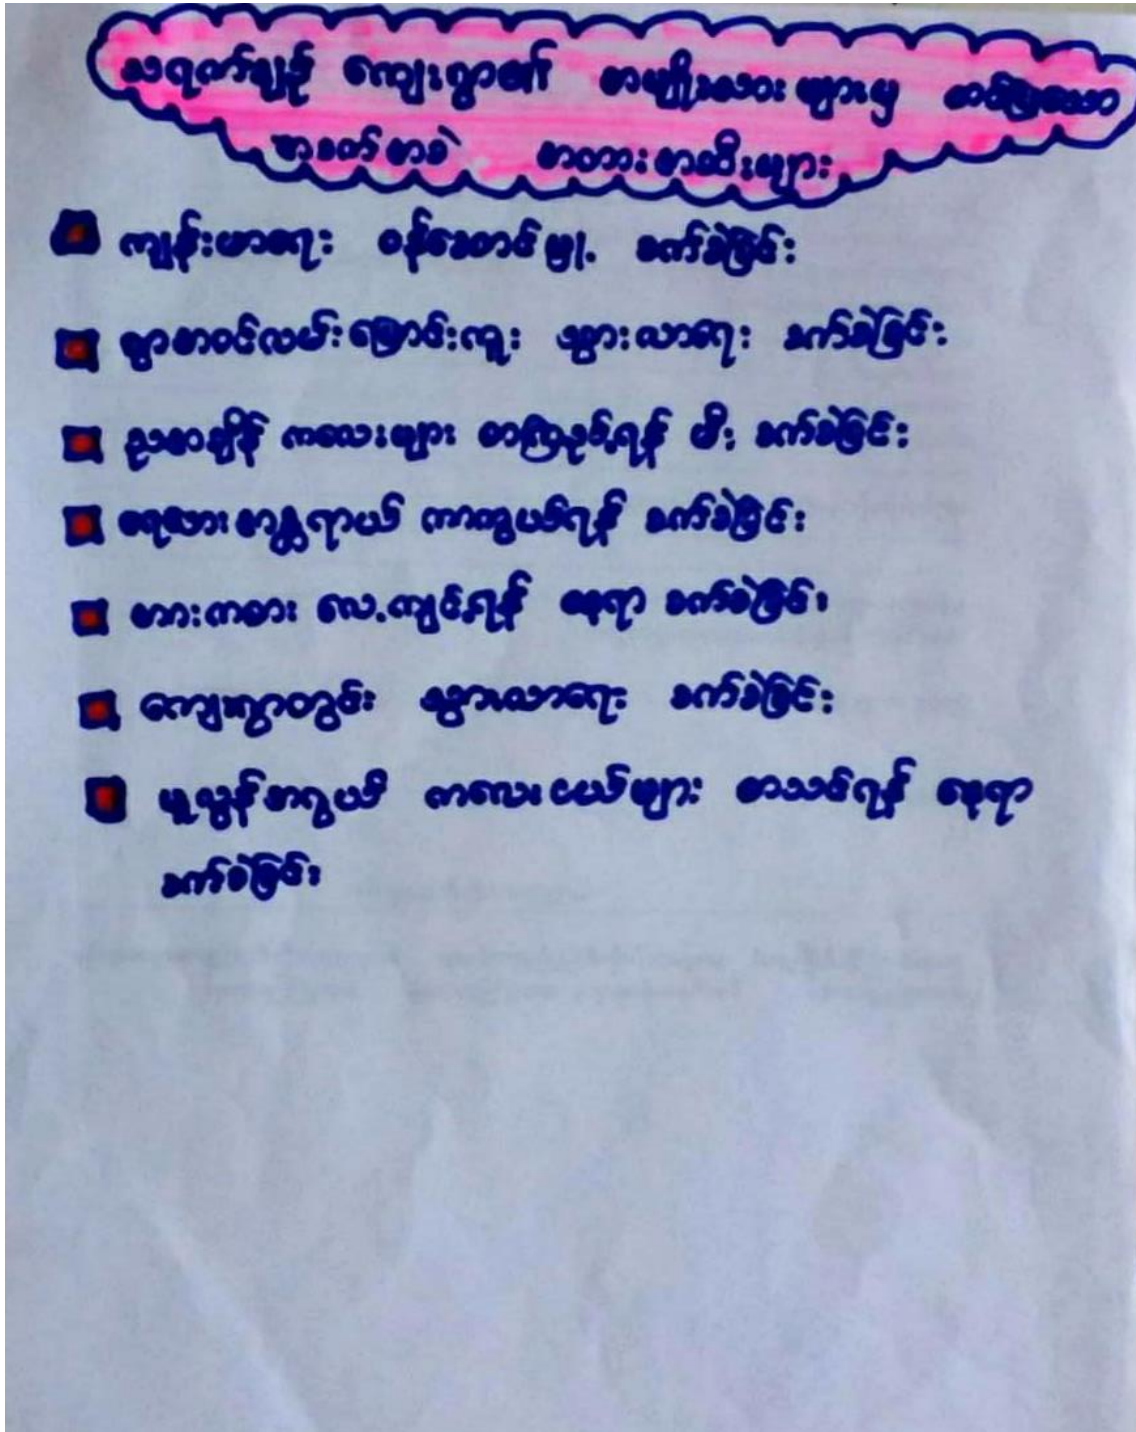 သရက်ချဉ် ကျေးရွာ၏ အမျိုးသားများမှ တင်ပြသော
အခက်အခဲ အတားအဆီးများ
ကျန်းမာရေး ဝန်ဆောင်မှု့ ခက်ခဲခြင်း
ရွာအဝင်လမ်းမြောင်းကူး သွားလာရေး ခက်ခဲခြင်း
ညအချိန် ကလေးများ စာကြည့်ရန် မီး ခက်ခဲခြင်း
ရေဘေးအန္တရာယ် ကာကွယ်ရန် ခက်ခဲခြင်း
အားကစား လေ့ကျင့်ရန် နေရာ ခက်ခဲခြင်း
ကျေးရွာတွင်း သွားလာရေး ခက်ခဲခြင်း
မူလွန်အရွယ် ကလေးငယ်များ စာသင်ရန် နေရာ
ခက်ခဲခြင်း